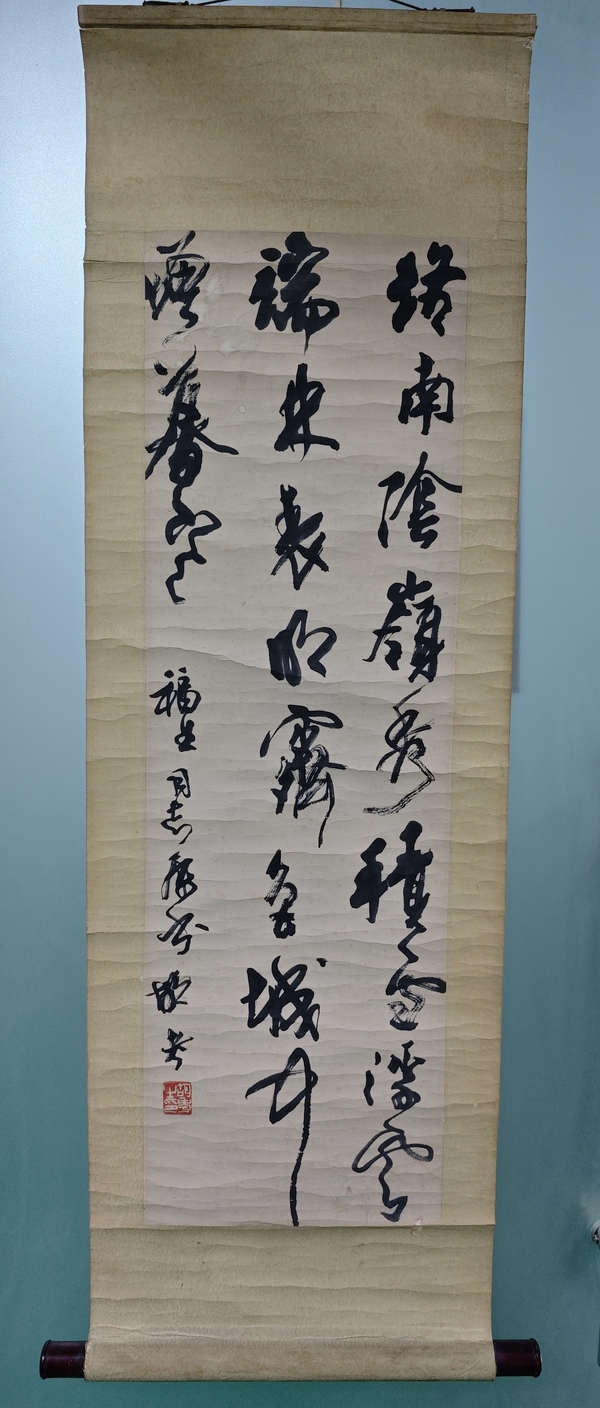 終南陰嶺秀積雪浮雲
端林表明霽色城中
增暮寒
福生同志